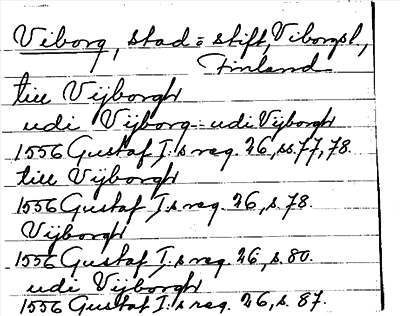 Viborg, stad = stift, Viborgsl.,
Finland
till Vijborgh
udi Vijborg = udi Vijborgh
1556 Gustaf I:s reg. 26, ss. 77, 78.
till Vijborgh
1556 Gustaf I:s reg. 26, s. 78.
Vijborgh
1556 Gustaf I:s reg. 26, s. 80.
udi Vijborgh
1556 Gustaf I:s reg. 26, s. 87.